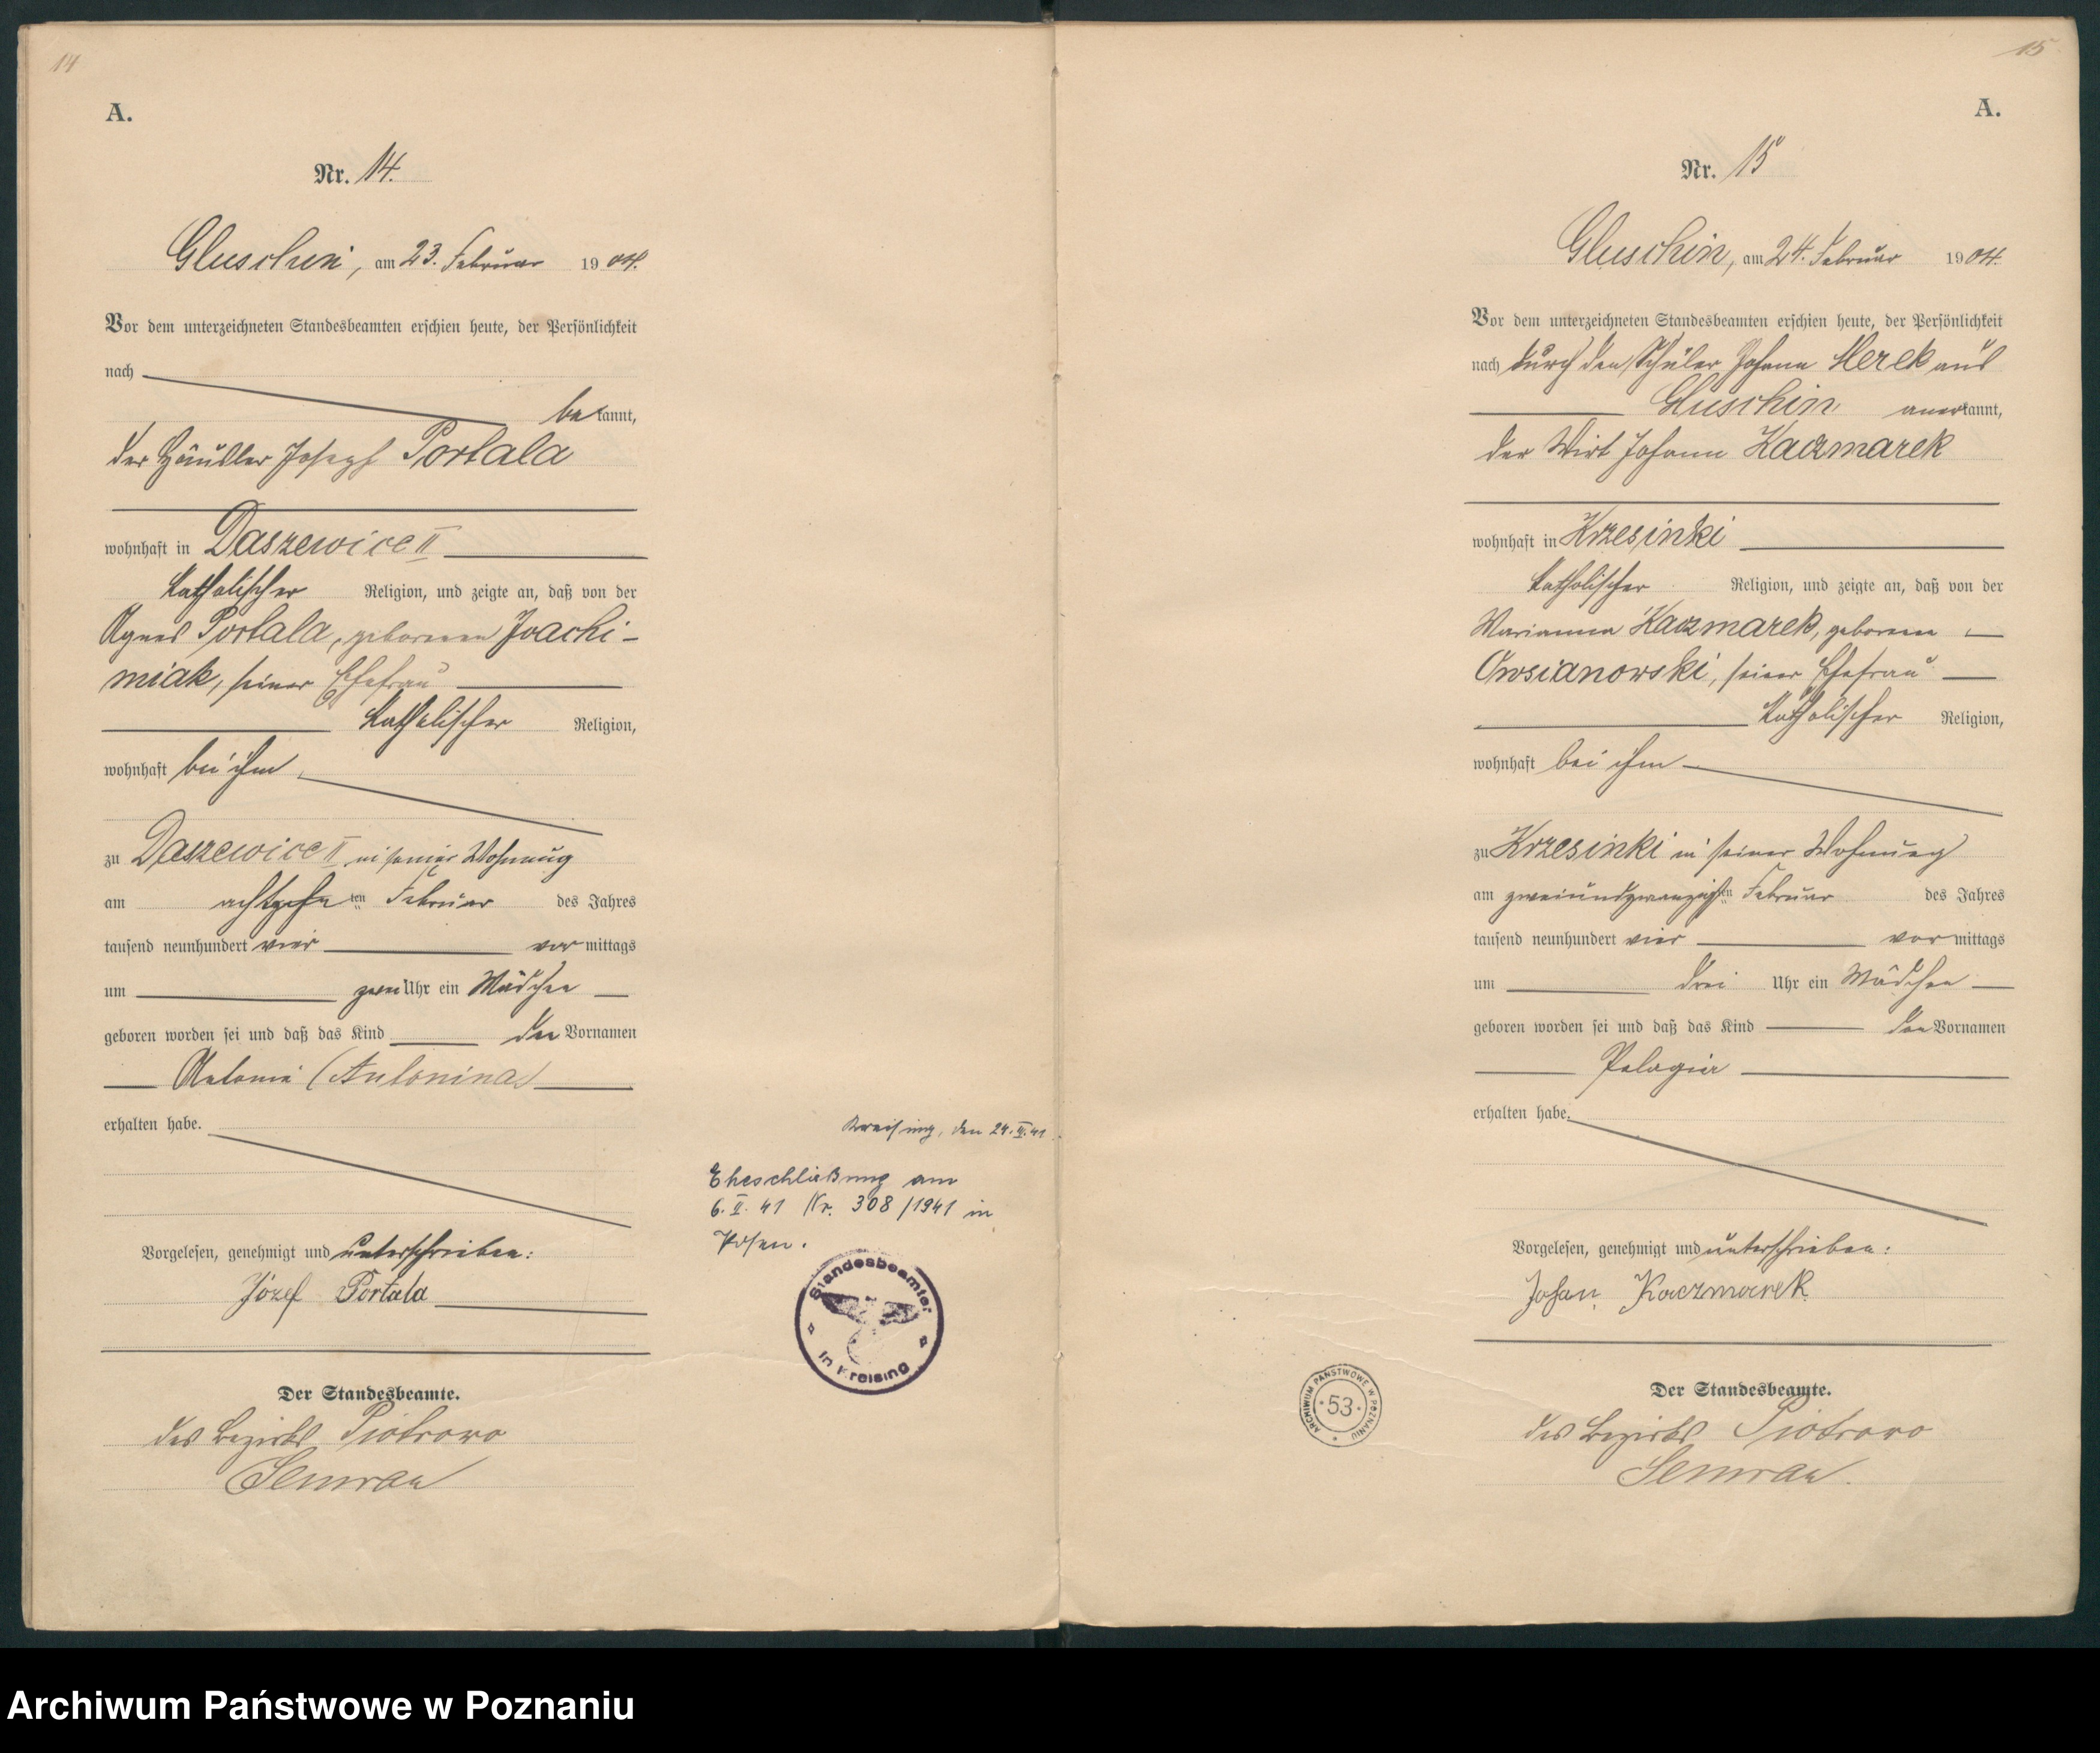 14
A.
Nr. 14.
Gluschin, am 23. Februar 1904.
Vor dem unterzeichneten Standesbeamten erschien heute, der Persönlichkeit
nach
bekannt,
der Häusler Joseph Portala
wohnhaft in Daszewice II
katholischer Religion, und zeigte an, daß von der
Agnes Portala, geborenen Joachi-
miak, seiner Ehefrau
katholischer Religion,
wohnhaft bei ihm
zu Daszewice II in seiner Wohnung
am achtzehnten Februar des Jahres
tausend neunhundert vier vormittags
um zwei Uhr ein Mädchen
geboren worden sei und daß das Kind den Vornamen
Antonie (Antonina)
erhalten habe.
Vorgelesen, genehmigt und unterschrieben:
Józef Portala
Der Standesbeamte.
des Bezirks Piotrowo
Kreising, den 24. II. 41
Eheschließung am
6. II. 41 Nr. 308/1941 in
Posen.
Standesbeamter
in Kreising
15
A.
Nr. 15
Gluschin, am 24. Februar 1904.
Vor dem unterzeichneten Standesbeamten erschien heute, der Persönlichkeit
nach durch den Schüler Johann Herek aus
Gluschin anerkannt,
der Wirt Johann Kaczmarek
wohnhaft in Krzesinki
katholischer Religion, und zeigte an, daß von der
Marianna Kaczmarek, geborene
Owsianowski, seiner Ehefrau
katholischer Religion,
wohnhaft bei ihm
zu Krzesinki in seiner Wohnung
am zweiundzwanzigsten Februar des Jahres
tausend neunhundert vier vormittags
um drei Uhr ein Mädchen
geboren worden sei und daß das Kind den Vornamen
Pelagia
erhalten habe.
Vorgelesen, genehmigt und unterschrieben:
Johan Kaczmarek
Der Standesbeamte.
des Bezirks Piotrowo
ARCHIWUM PAŃSTWOWE W POZNANIU
53
Archiwum Państwowe w Poznaniu